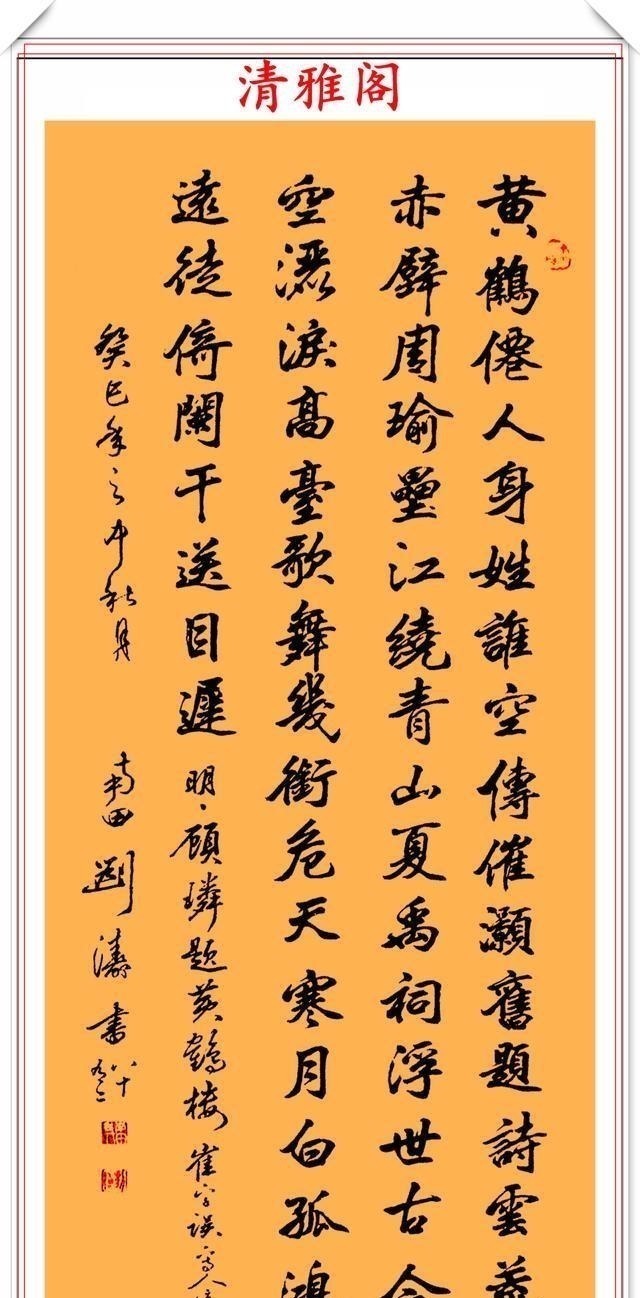 清雅阁
黄鶴僊人身姓誰空傳催灝舊題詩雲
赤壁周瑜壘江繞青山夏禹祠浮世古今
空灑淚高臺歌舞幾銜危天寒月白孤鴻
遠徒倚闌干送目遲 明、顧璘题黄鶴楼 崔字誤寫人
癸巳年之中秋月 南田劉濤書 八十